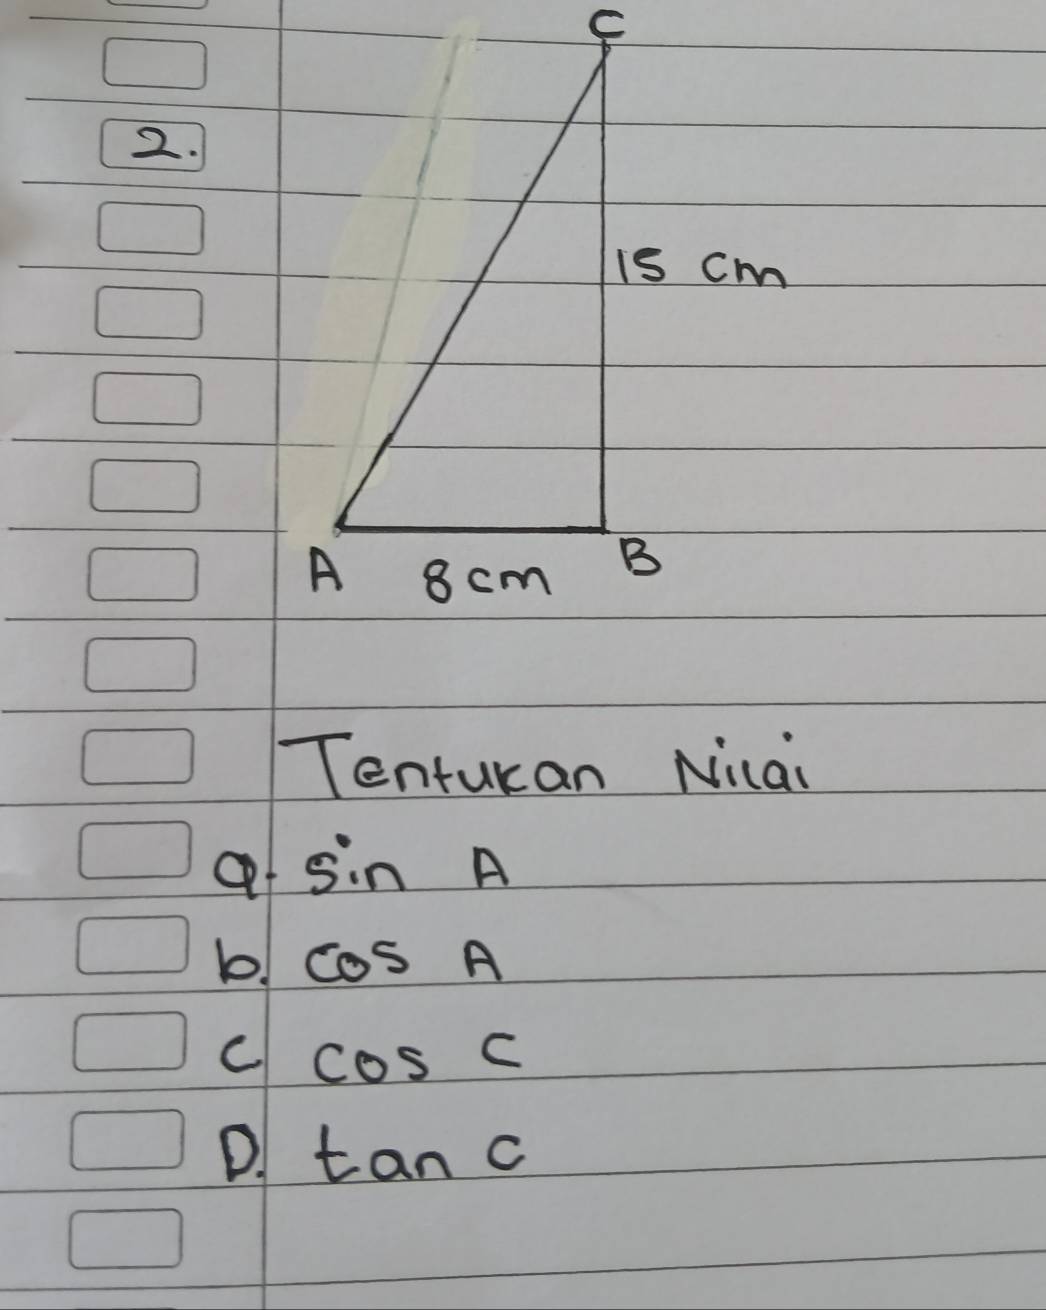 C
2.
15 cm
A 8 cm B
Tentukan Nilai
a. sin A
b. cos A
c cos C
D. tan C